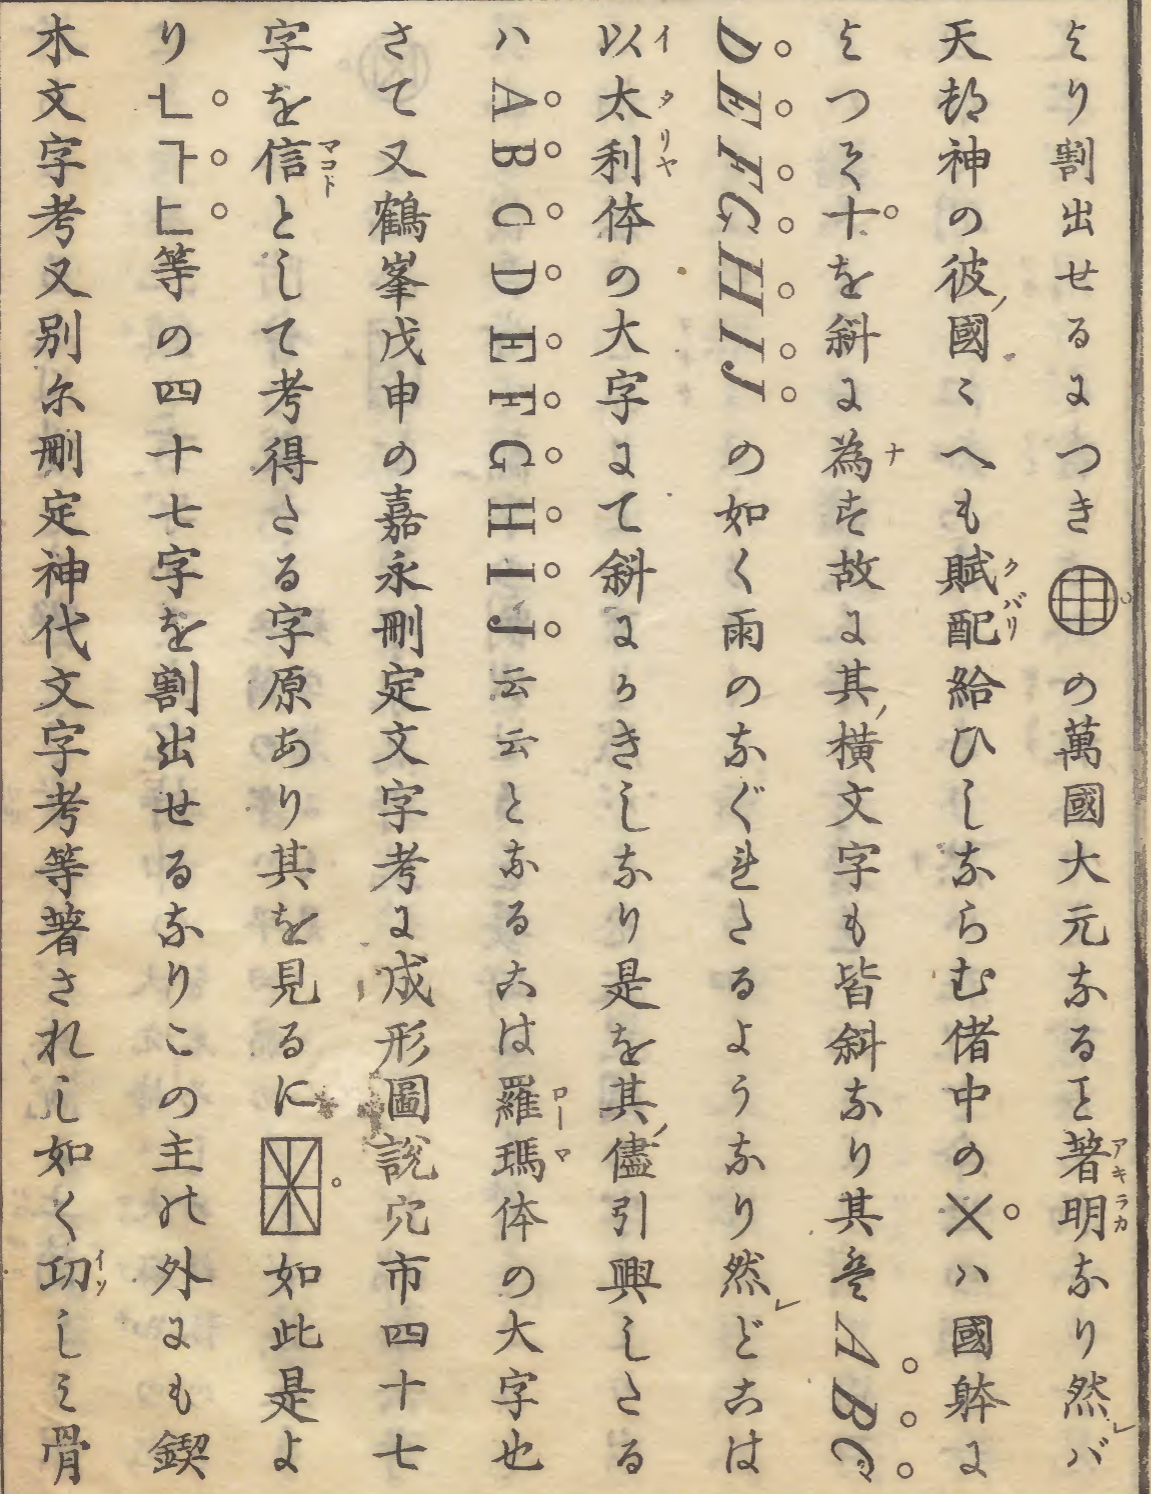 より割出せるにつき の萬國大元なるヿ著明なり然バ
天都神の彼國〻へも賦配給ひしならむ偖中の乂ハ國躰に
よつて十を斜に為す故に其横文字も皆斜なり其 ABC
DEFGHIJの如く雨のなぐれたるようなり然ど古は
以太利体の大字にて斜にかきしなり是を其儘引興したる
ハABCDEFGHIJ云云となる古は羅瑪体の大字也
さて又鶴峯戊申の嘉永刪定文字考に成形圖說穴市四十七
字を信として考得たる字原あり其を見るに 如此是よ
り 等の四十七字を割出せるなりこの主の外にも鍥
木文字考又別尓刪定神代文字考等著されし如く功しミ骨